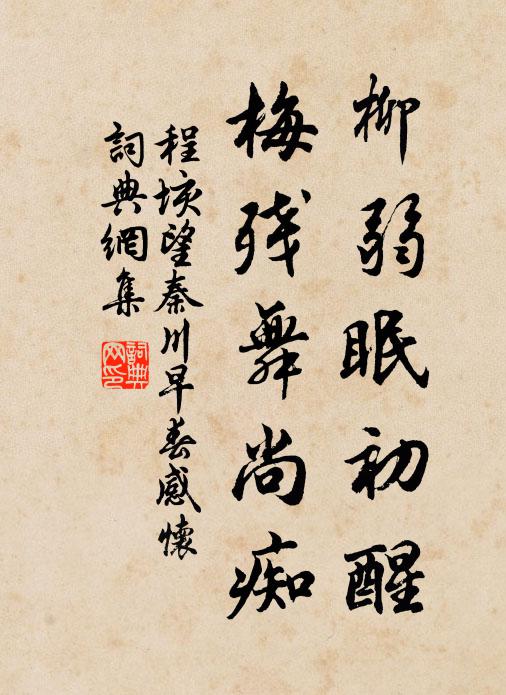 柳弱眠初醒
梅残舞尚痴
程垓望秦川早春感懷
詞典網集
詞典網印